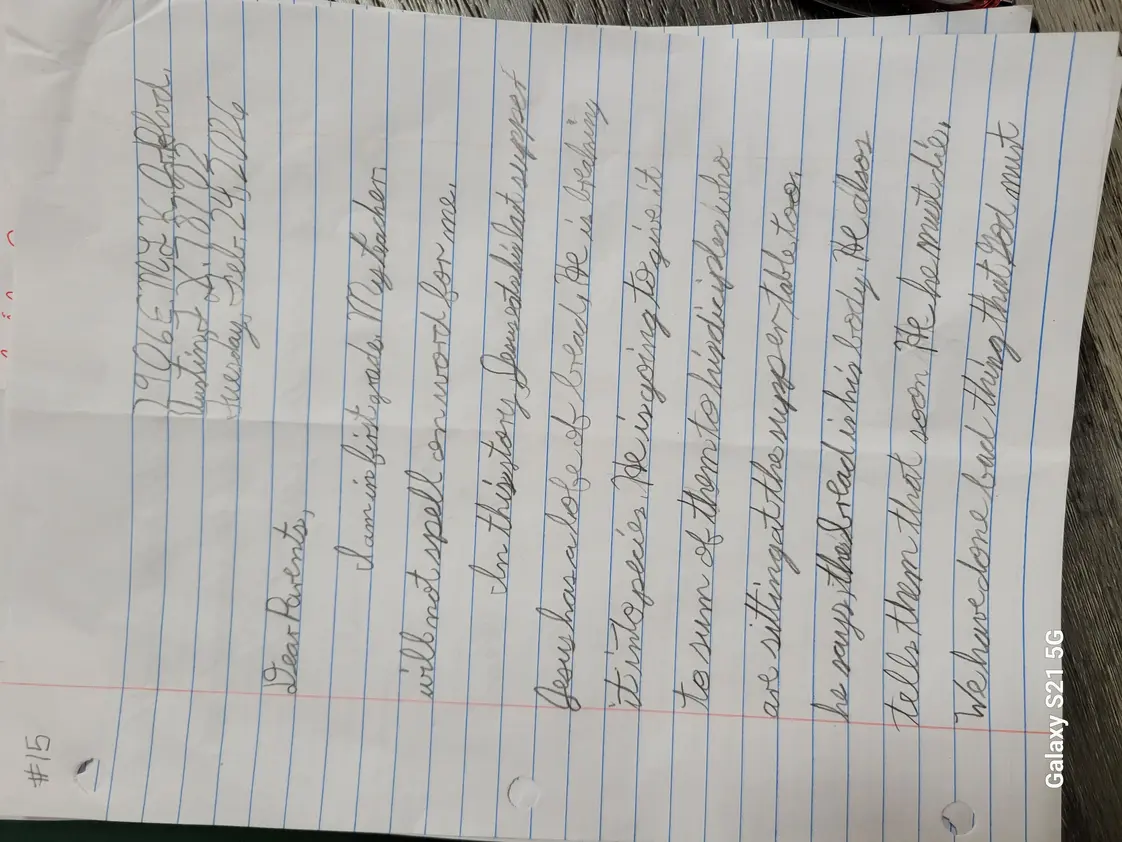 #15
1906 E. MLK Jr. Blvd.
Austin, TX, 78702
Tuesday, Feb. 24, 2026
Dear Parents,
I am in first grade. My teacher
will not spell on word for me.
In this story, Jesus eats his last supper
Jesus has a lofe of bread. He is breaking
it into pecies. He is going to give it
to sum of them to his diciples who
are sitting at the supper table too.
he says, the bread is his body. He also
tells them that soon He he must die.
We have done bad thing that God must
Galaxy S21 5G